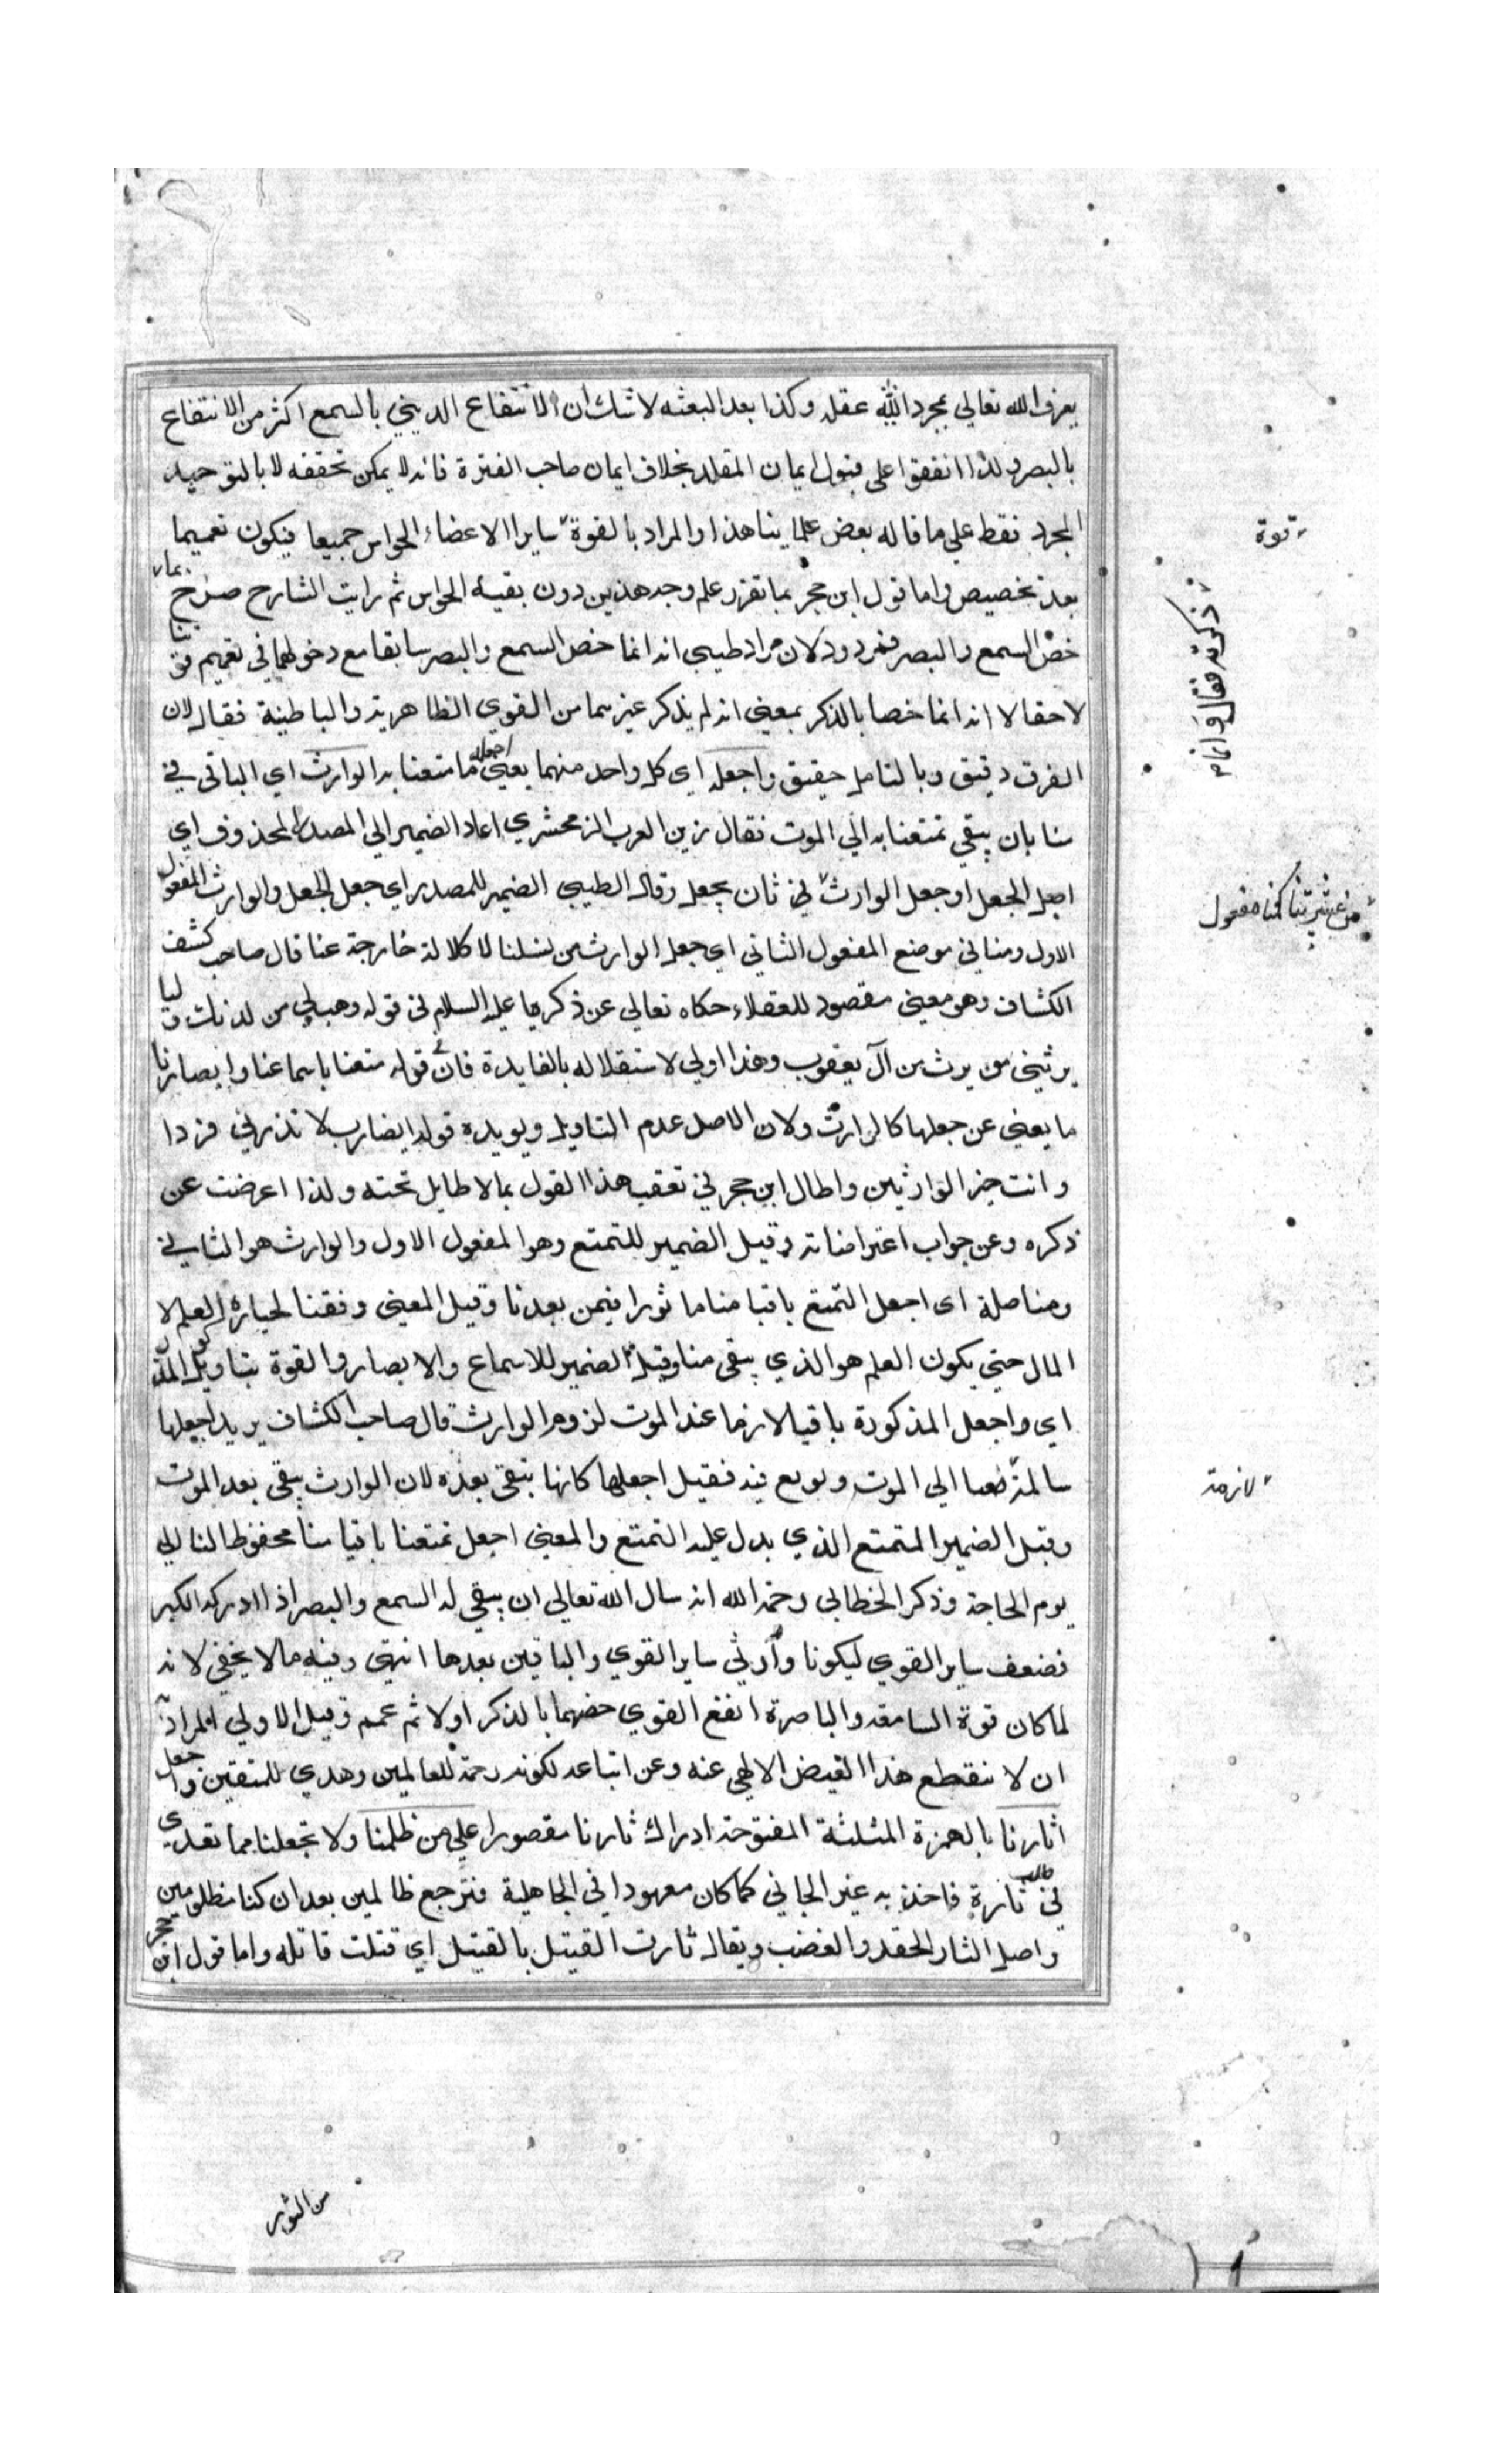 يعرف الله تعالي بمجرد عقله وكذا بعد البعثه لا شك ان الانتفاع الديني بالسمع اكثر من الانتفاع
بالبصر ولذا اتفقوا على قبول ايمان المقلد بخلاف ايمان صاحب الفترة فانه لا يمكن تحققه لا بالتوحيد
المجرد فقط علي ما قاله بعض علماينا هذا والمراد بالقوة ساير الاعضاء الحواس جميعا فيكون تعميما
بعد تخصيص واما قول ابن حجر بما تقرر علم وجه هذين دون بقية الحواس ثم رايت الشارح صرح بما
خص السمع والبصر فمردود لان مراد طيبي انه انما خص السمع والبصر سابقا مع دخولهما في تعميم قوتنا
لاحقا لا انه انما خصا بالذكر بمعني انه لم يذكر غيرهما من القوي الظاهرية والباطنية فقال لان
الفرق دقيق وبالتامل حقيق واجعله اي كل واحد منهما يعني اجعل ما متعنا به الوارث اي الباقي في
منا بان يبقي تمتعنا به الي الموت فقال زين العرب الزمحشري اعاد الضمير الي المصدر المحذوف اي
اجعل الجعل او جعل الوارث في ثان يجعل وقال الطيبي الضمير للمصدر اي جعل الجعل والوارث المفعول
الاول ومنا في موضع المفعول الثاني اي جعل الوارث من نسلنا لا كلالة خارجة عنا قال صاحب كشف
الكشاف وهو معني مقصود للعقلاء حكاه تعالي عن ذكريا عليه السلام في قوله وهب لي من لدنك وليا
يرثني من يرث من آل يعقوب وهذا اولي لاستقلاله بالفايدة فان قوله متعنا باسماعنا وابصارنا
ما يغني عن جعلها كالوارث ولان الاصل عدم التاويل ويويده قوله ايضا رب لا تذرني فردا
وانت خير الوارثين واطال ابن حجر في تعقب هذا القول بما لا طايل تحته ولذا اعرضت عن
ذكره وعن جواب اعتراضاته وقيل الضمير للتمتع وهو المفعول الاول والوارث هو الثاني
ومنا صلة اى اجعل التمتع باقيا منا ما ثورا فيمن بعدنا وقيل المعني وفقنا لحيازة العلم لا
المال حتي يكون العلم هو الذي يبقى منا وقيل الضمير للاسماع والابصار والقوة بتاويل المذكور
اي واجعل المذكورة باقيا لازما عند الموت لزوم الوارث قال صاحب الكشاف يريد اجعلها
سالمة الي الموت وبولغ فيه فقيل اجعلها كانها تبقي بعده لان الوارث يبقي بعد الموت
وقيل الضمير المتمتع الذي يدل عليه التمتع والمعني اجعل تمتعنا باقيا منا محفوظا لنا الي
يوم الحاجة وذكر الخطابي رحمه الله انه سال الله تعالي ان يبقي له السمع والبصر اذا ادركه الكبر
فضعف ساير القوي ليكونا وارثي ساير القوي والباقين بعدها انتهي وفيه ما لا يخفي لانه
لما كان قوة السامعة والباصرة انفع القوي خصهما بالذكر اولا ثم عمم وقيل الاولي المراد
ان لا ينقطع هذا الفيض الالهي عنه وعن اتباعه لكونه رحمة للعالمين وهدي للمتقين واجعل
اثارنا بالهمزة المثلثة المفتوحة ادراك ثارنا مقصورا علي من ظلمنا ولا تجعلنا مما تعدي
في طلب ثارة فاخذ به غير الجاني كما كان معهودا في الجاهلية فنرجع ظالمين بعد ان كنا مظلومين
واصل الثار الحقد والغضب ويقال ثارت القتيل بالقتيل اي قتلت قاتله واما قول ابن حجر
قوة
ذكرته فقال وانما
من عشيرتنا كنا مفعول
لازمة